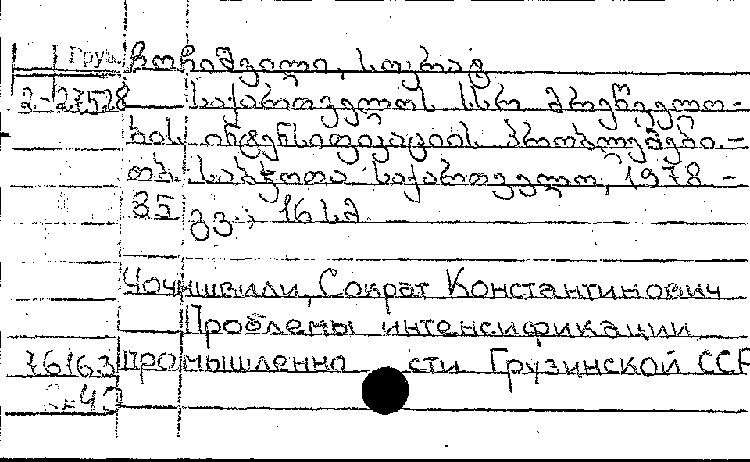 Груз ჩოჩიშვილი, სოკრატ
2-27528 საქართველოს სსრ მრეწველო-
ბის ინტენსიფიკაციის პრობლემები. –
თბ. საბჭოთა საქართველო, 1978. –
85 გვ.; 16 სმ.
Чочишвили, Сократ Константинович
Проблемы интенсификации
76163 промышленно сти Грузинской ССР